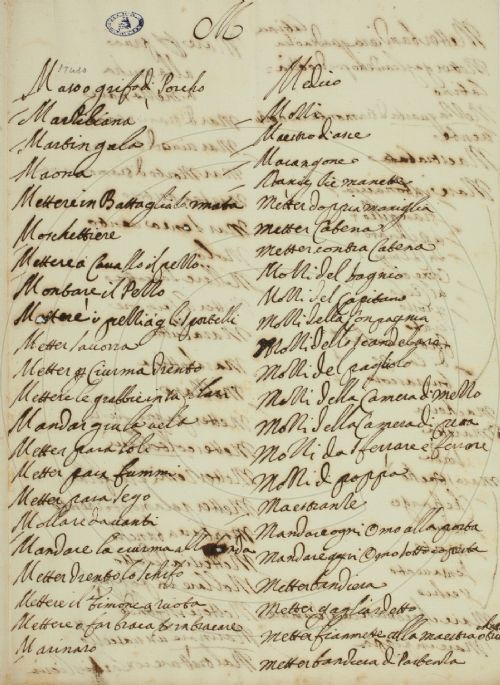 M
Muso o grifo di Porcho
Marsiliana
Martingala
Maona
Mettere in Battaglia l'armata
Moschettiere
Mettere a Cavallo il pello
Montare il Pello
Mettere i pelli agli portelli
Metter savorra
Metter Ciurma drento
Mettere le grabbie in
Mandar giu la vela
Metter para soli
Metter para fummi
Metter para sego
Mollare davanti
Mandare la ciurma alla banda
Metter drento lo schifo
Mettere il timone a ruota
Mettere o far braca
Marinaro
Medico
Molli
Maestro d'asce
Marangone
Manette
Metter doppia maniglia
Metter Catena
Metter contra Catena
Molli del bagnio
Molli del Capitano
Molli della Compagnia
Molli dello scandelaro
Molli del pagliolo
Molli della Camera di mezzo
Molli della Camera di prora
Molli da sferrare e ferrare
Molli di poppa
Maestrante
Mandare ogni Omo alla posta
Mandare ogni Omo sotto coperta
Metter bandiera
Metter gagliardetto
Metter fiammette alla maestra
Metter bandiera di Partenza